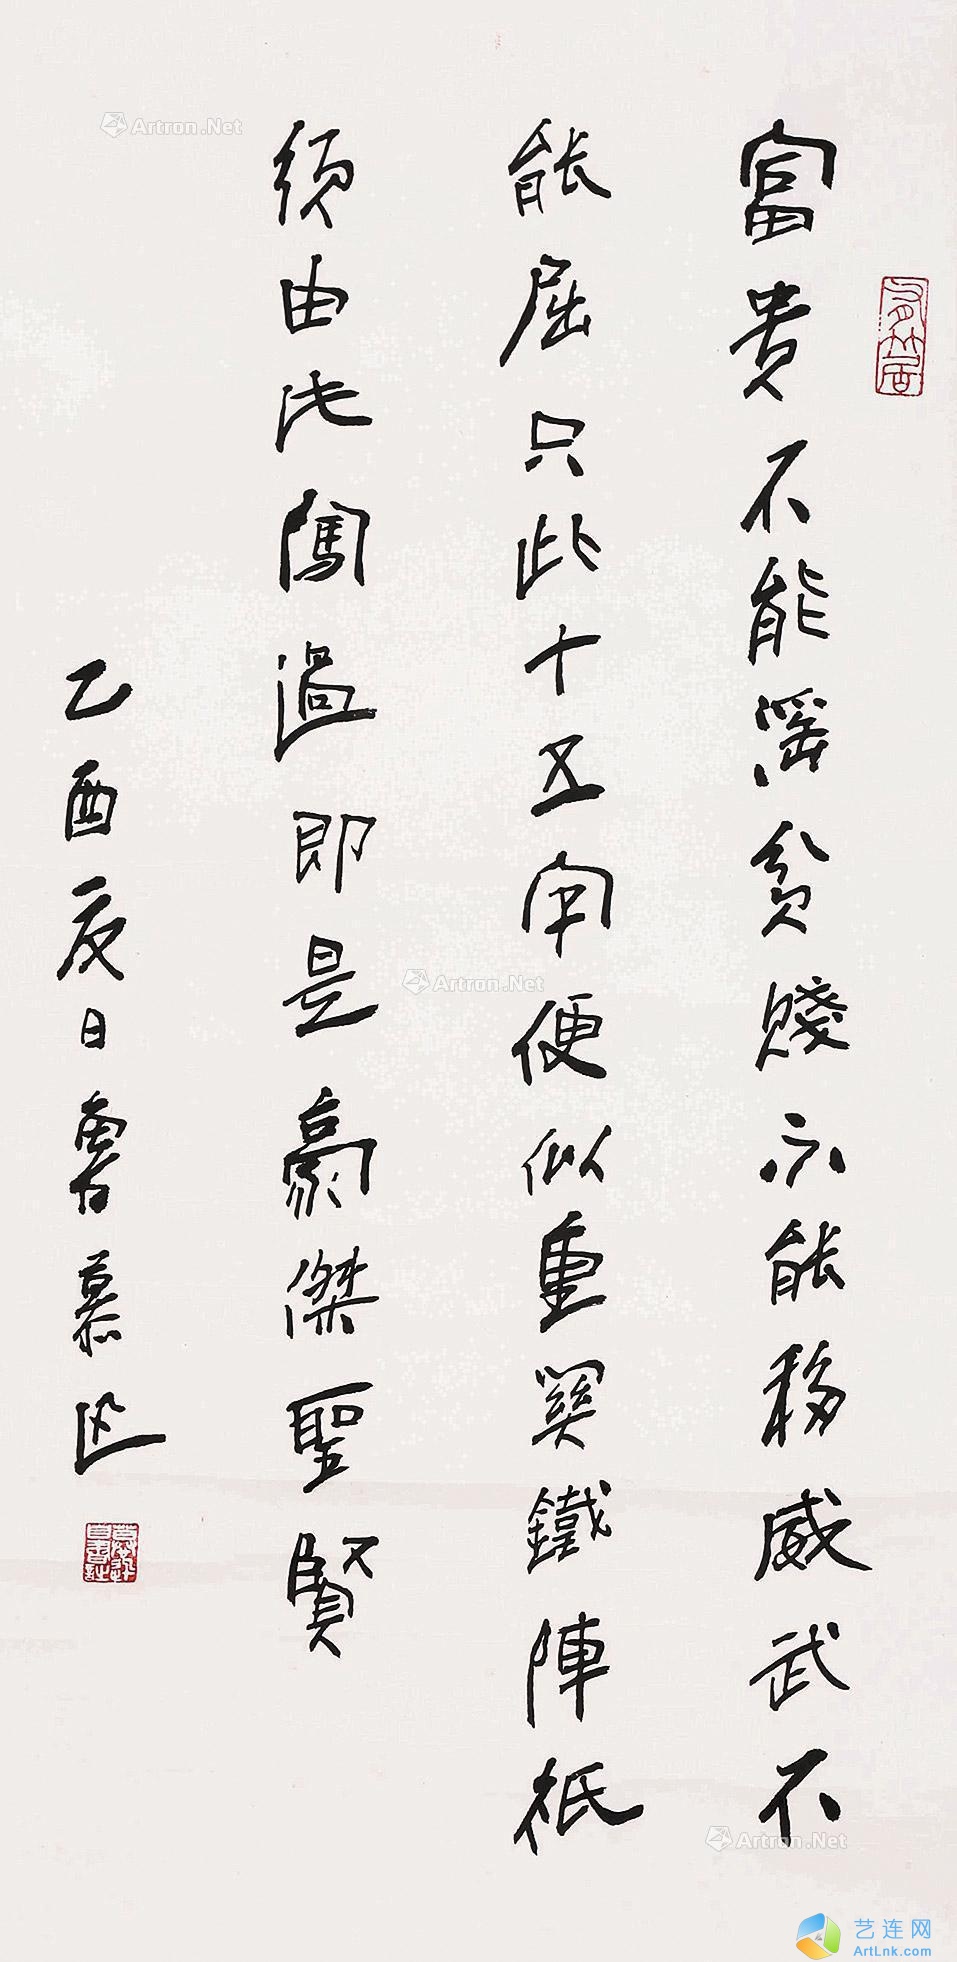 富貴不能淫貧賤不能移威武不
能屈只此十五字便似重關鐵陣祇
須由此闖過即是豪傑聖賢
乙酉夏日魯慕迅
Artron.Net
Artron.Net
Artron.Net
艺连网
ArtLnk.com